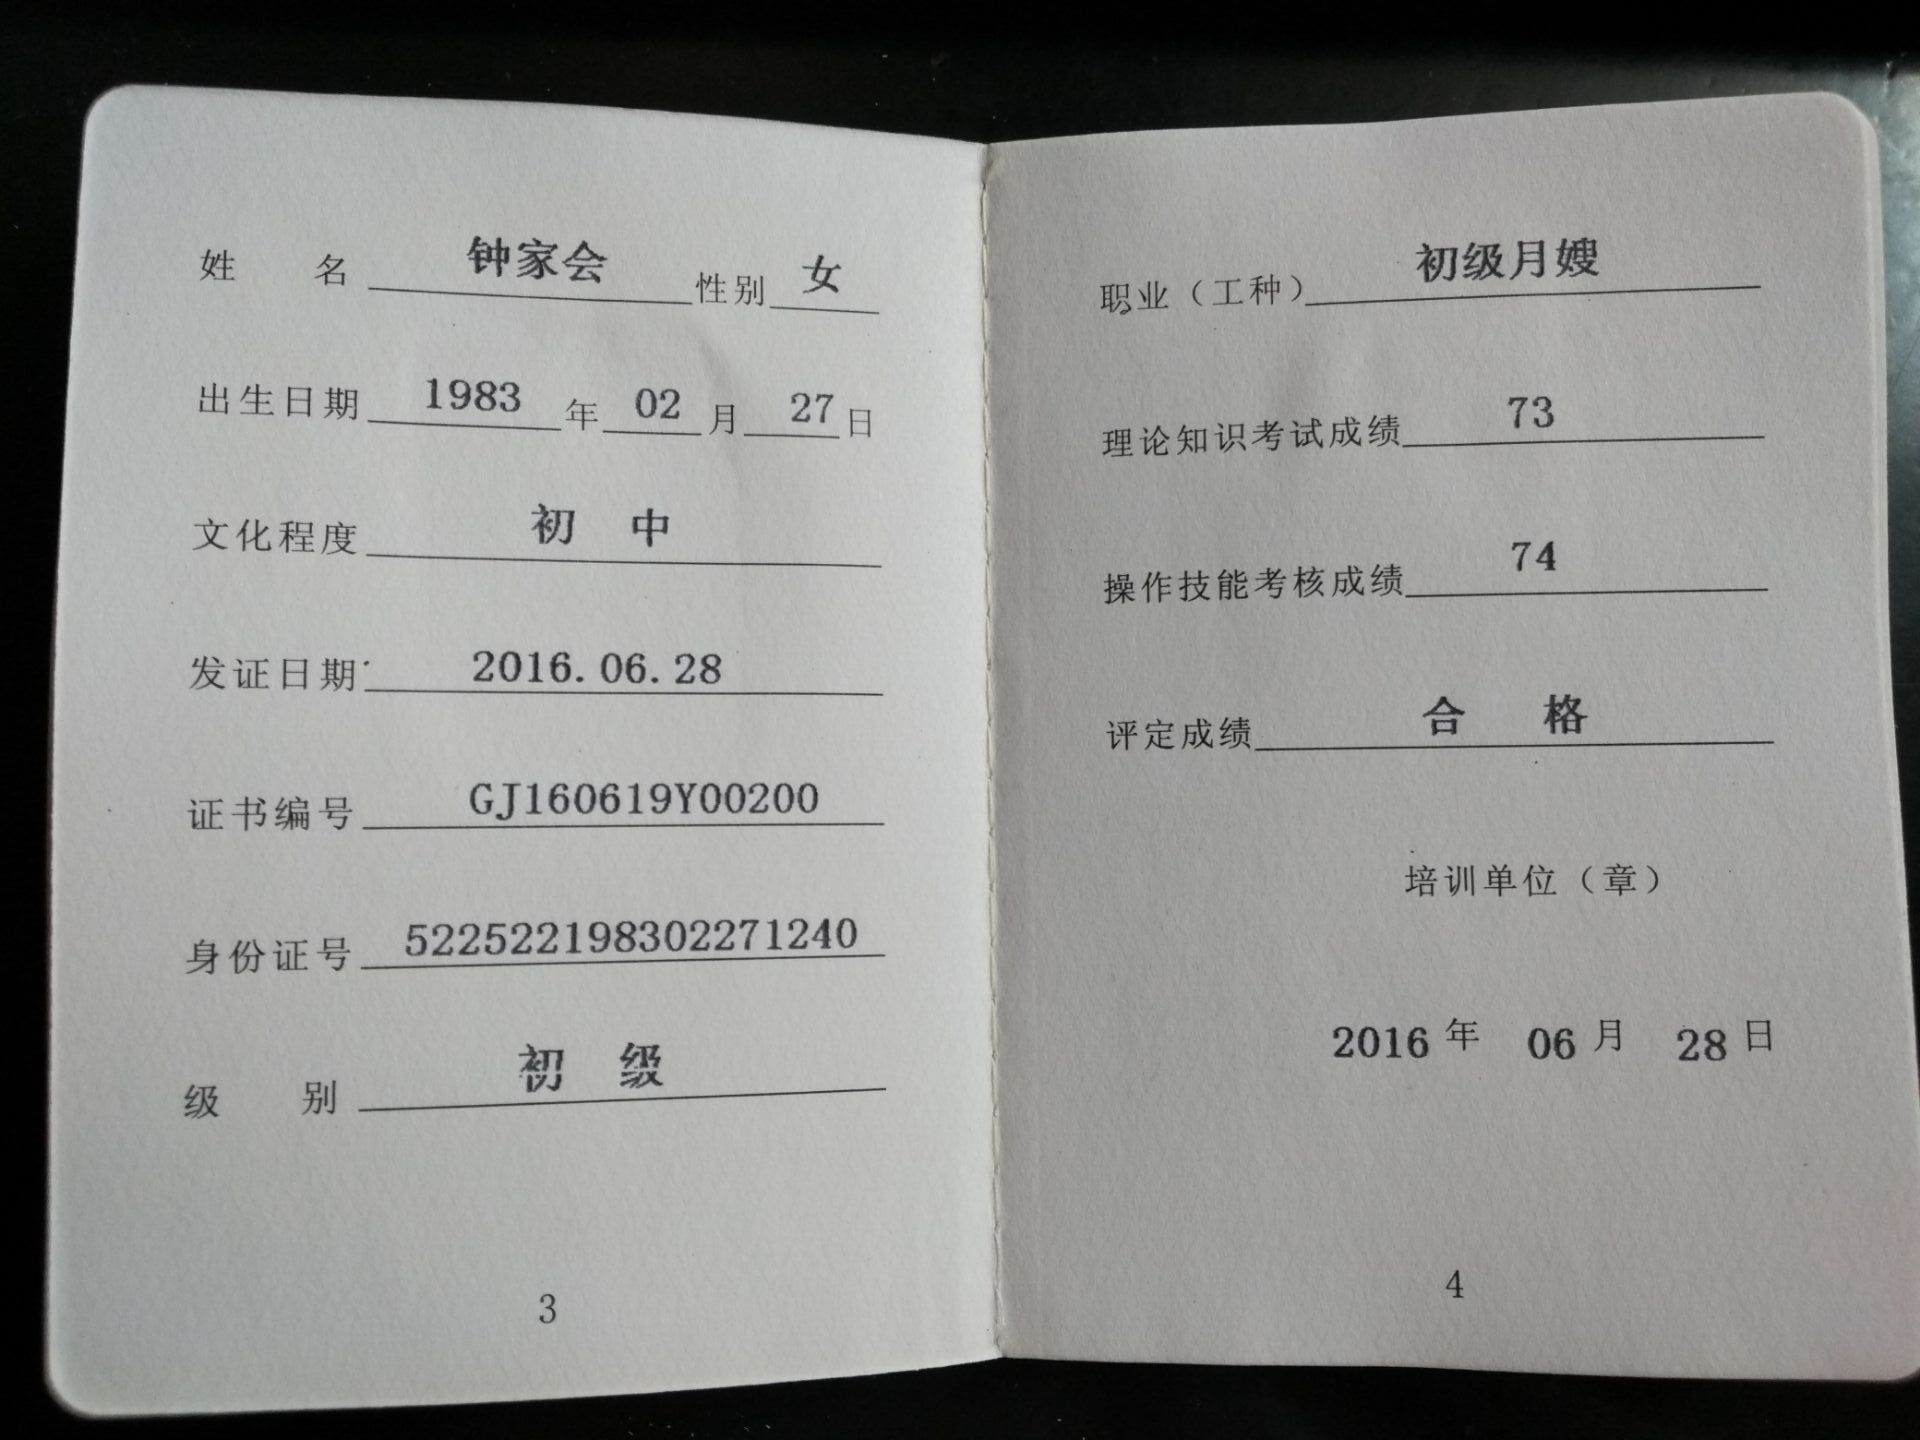 姓 名 钟家会 性别 女
出生日期 1983 年 02 月 27 日
文化程度 初 中
发证日期 2016.06.28
证书编号 GJ160619Y00200
身份证号 522522198302271240
级 别 初 级
3
职业（工种） 初级月嫂
理论知识考试成绩 73
操作技能考核成绩 74
评定成绩 合 格
培训单位（章）
2016 年 06 月 28 日
4